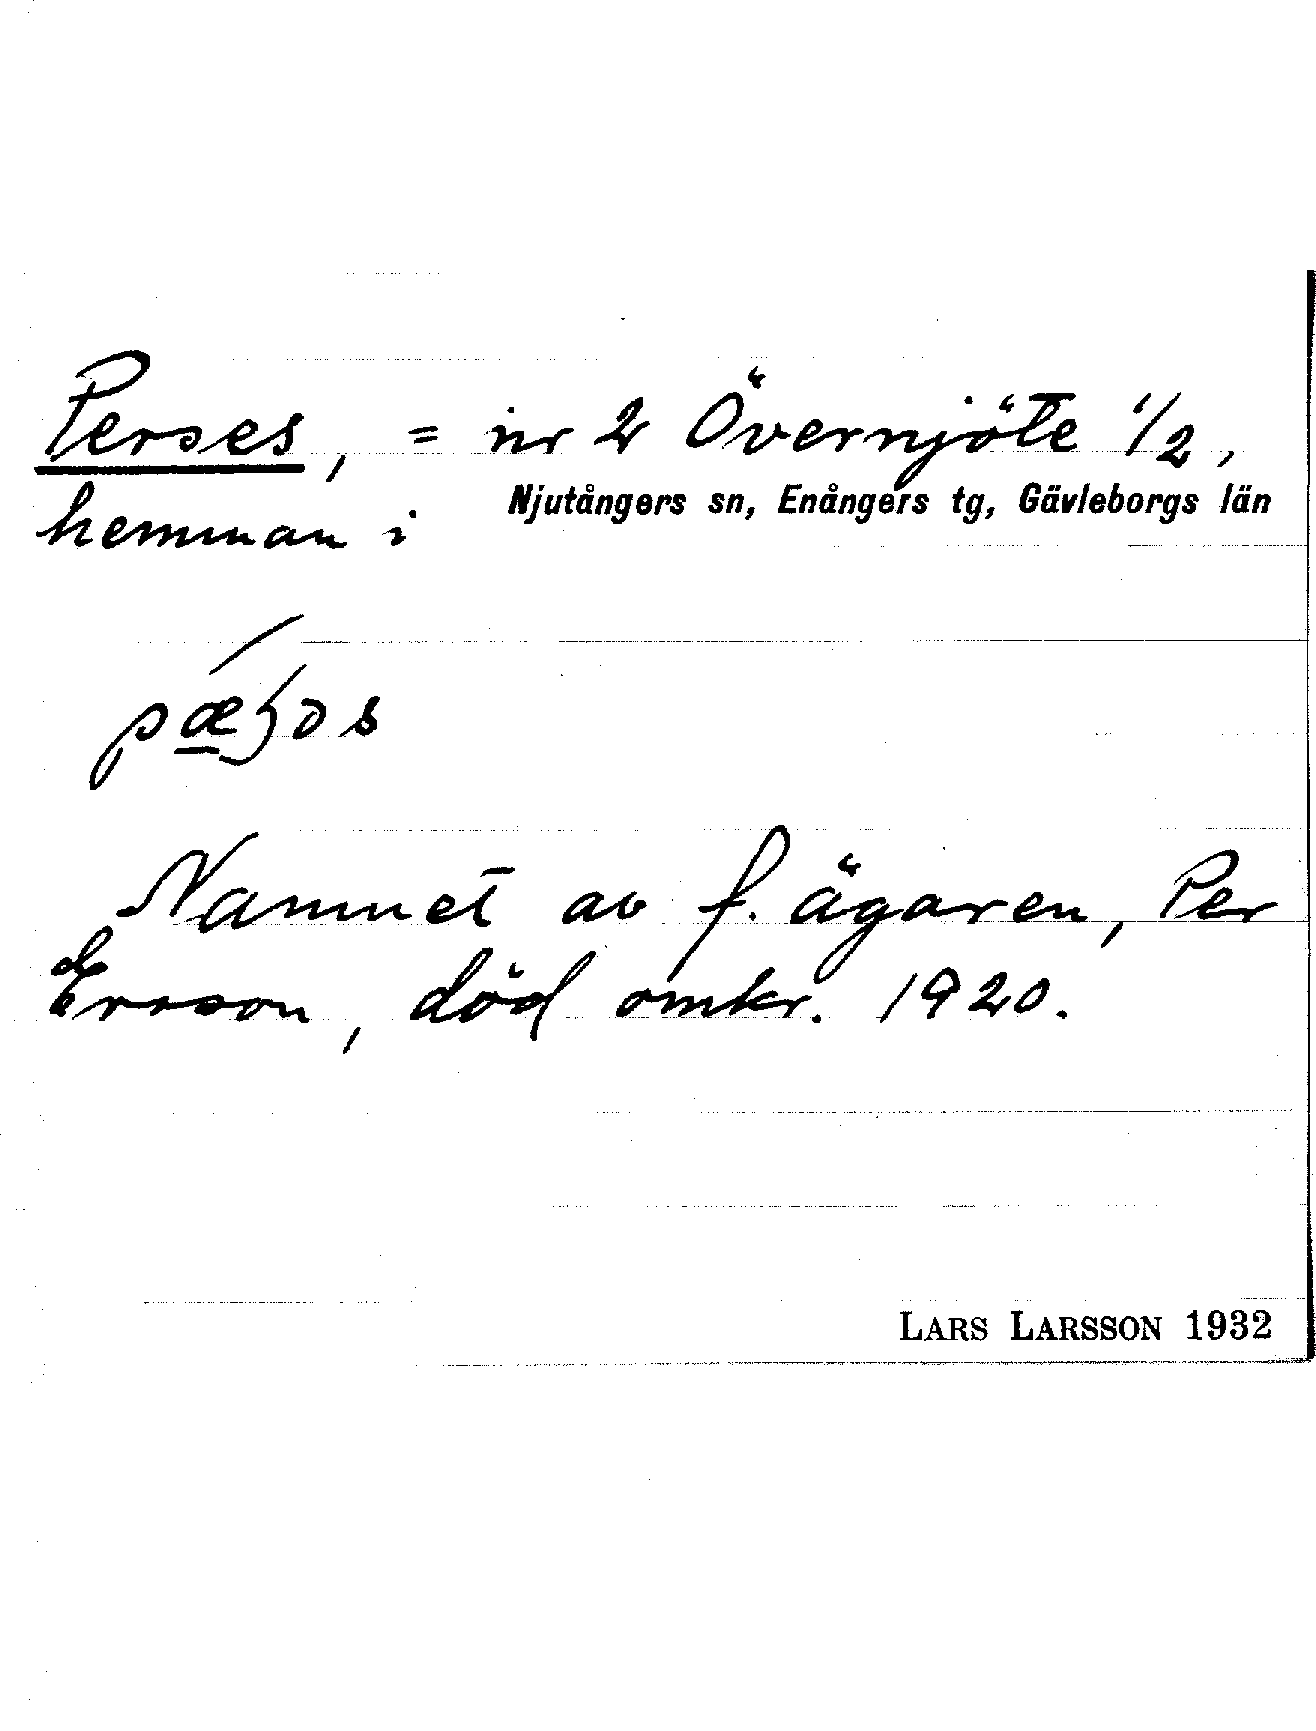 Perses, = nr 2 Övernjöte 1/2,
hemman i Njutångers sn, Enångers tg, Gävleborgs län
Namnet av f. ägaren, Per
Ersson, död omkr. 1920.
LARS LARSSON 1932